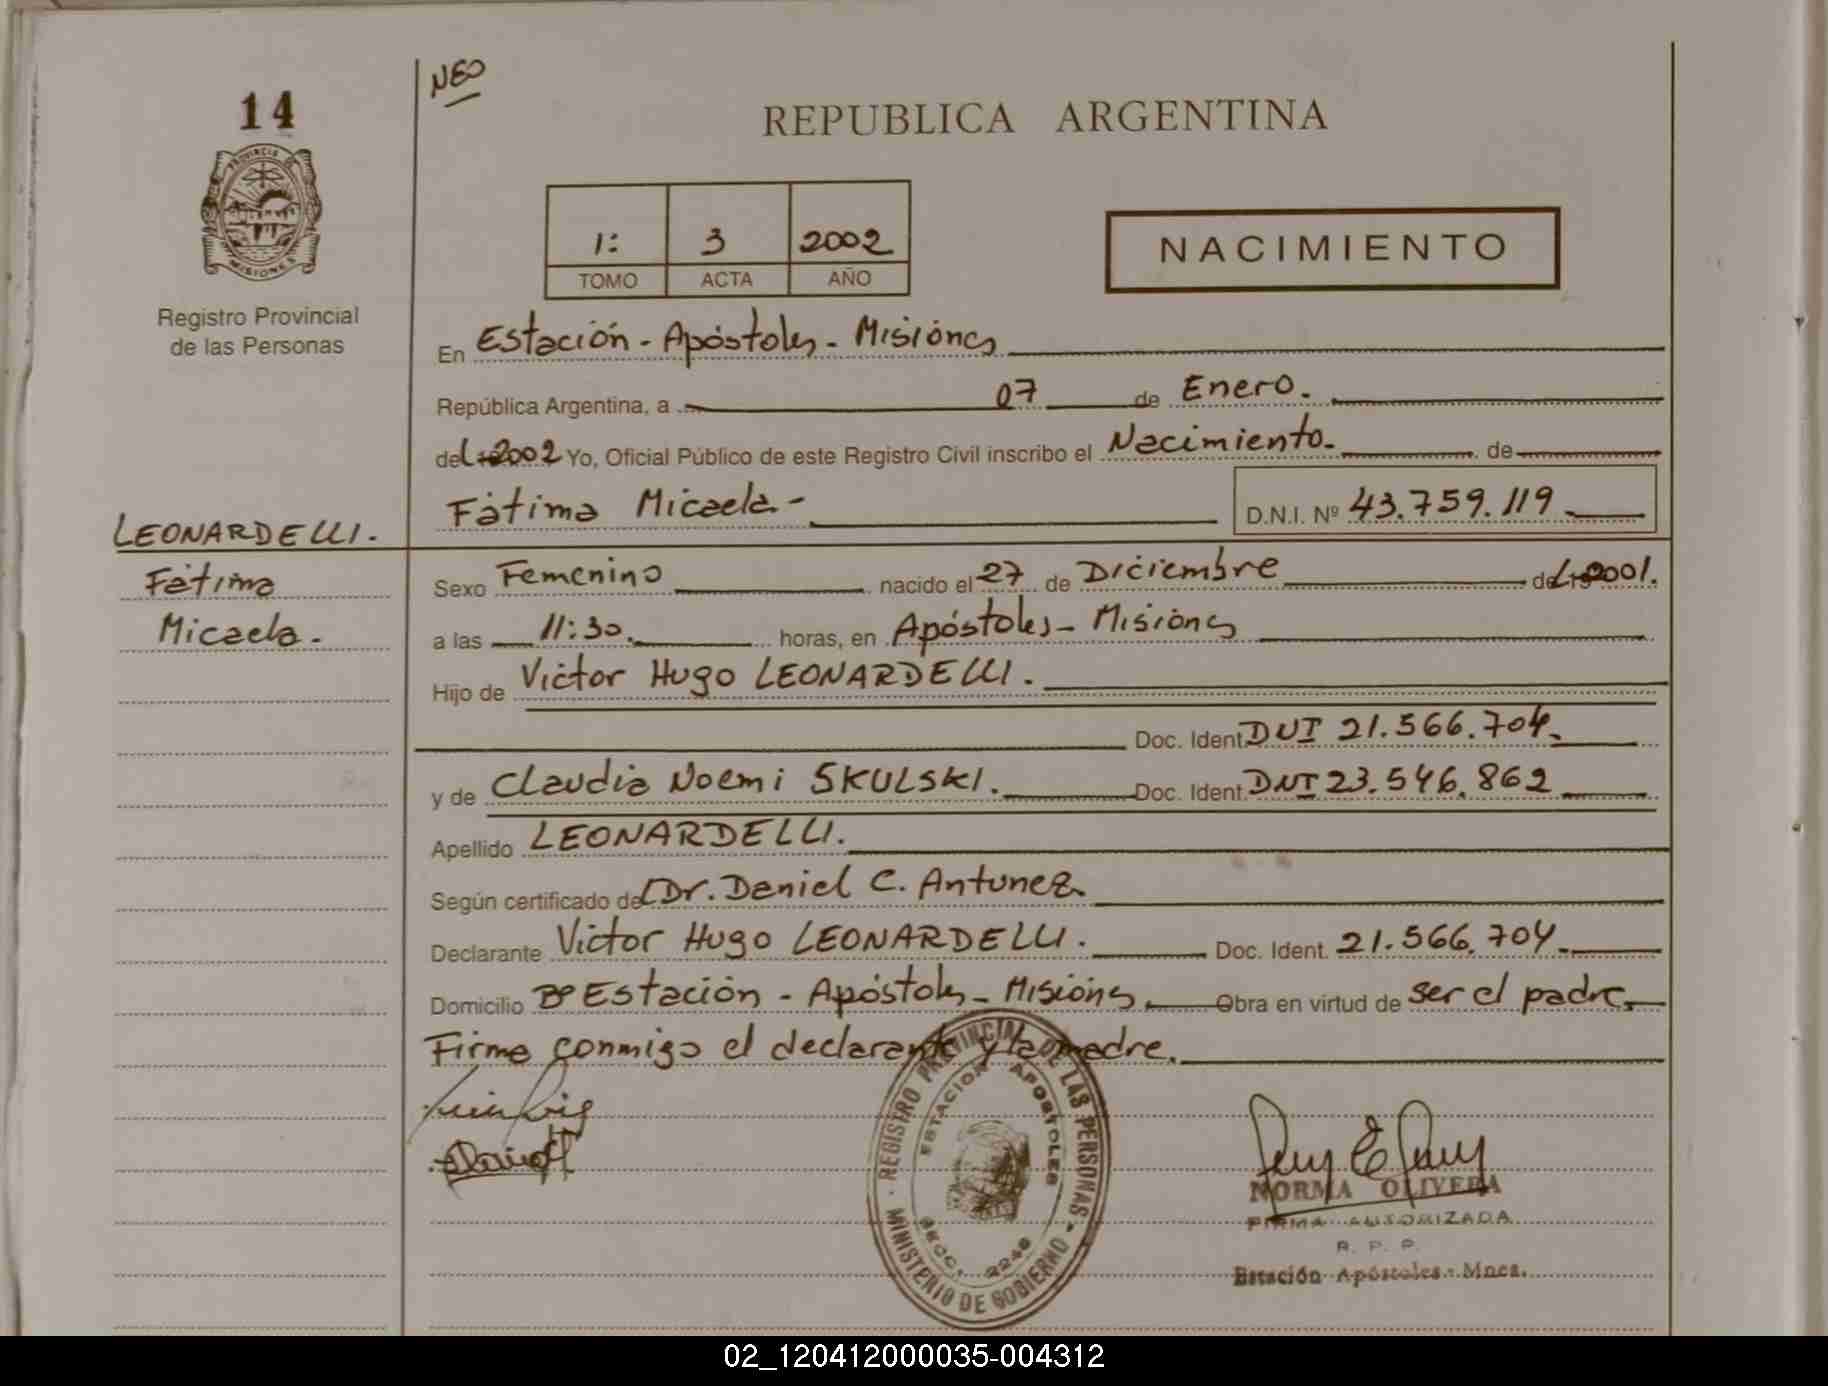 14
NEO
REPUBLICA ARGENTINA
PROVINCIA DE
MISIONES
1: 3 2002
TOMO ACTA AÑO
NACIMIENTO
Registro Provincial
de las Personas
En Estación - Apóstoles - Misiones
República Argentina, a 07 de Enero.
del 2002 Yo, Oficial Público de este Registro Civil inscribo el Nacimiento. de
Fátima Micaela - D.N.I. Nº 43.759.119
LEONARDELLI.
Fátima
Micaela.
Sexo Femenino nacido el 27 de Diciembre del 2001.
a las 11:30. horas, en Apóstoles - Misiones
Hijo de Victor Hugo LEONARDELLI.
Doc. Ident. DNI 21.566.704.
y de Claudia Noemi SKULSKI. Doc. Ident. DNI 23.546.862
Apellido LEONARDELLI.
Según certificado del Dr. Daniel C. Antunez.
Declarante Victor Hugo LEONARDELLI. Doc. Ident. 21.566.704.
Domicilio Bº Estación - Apóstoles - Misiones. Obra en virtud de ser el padre.
Firma conmigo el declarante y la madre.
REGISTRO PROVINCIAL DE LAS PERSONAS
ESTACION APOSTOLES
SECC. 2246
MINISTERIO DE GOBIERNO
NORMA OLIVERA
FIRMA AUTORIZADA
R. P. P.
Estación Apóstoles - Mnes.
02_120412000035-004312